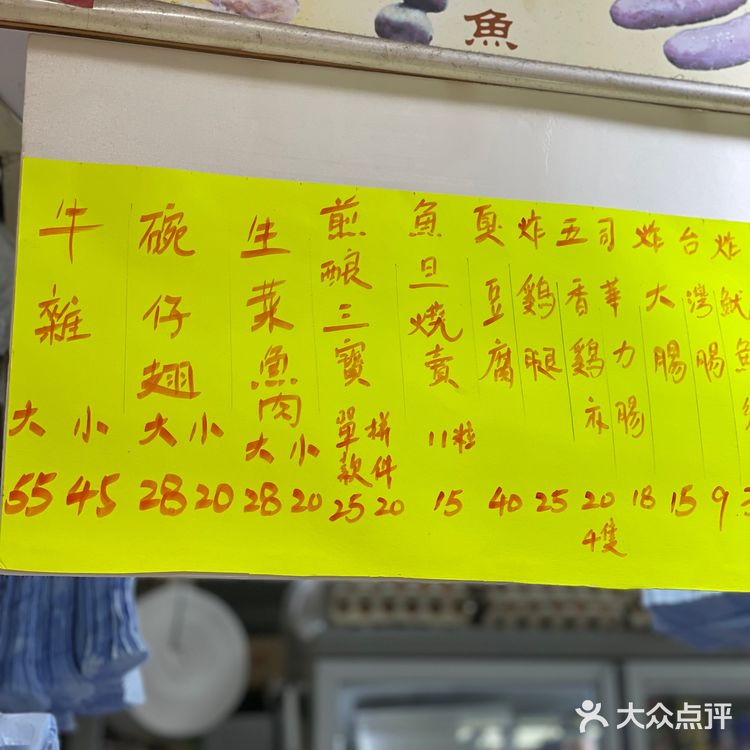 魚
牛雜
大 小
55 45
碗仔翅
大 小
28 20
生菜魚肉
大 小
28 20
煎酿三寶
單款 拼件
25 20
魚旦燒賣
11粒
15
臭豆腐
40
炸鷄腿
25
五香鷄亦
20
4隻
司華力腸
18
炸大腸
15
台灣腸
9
炸魷魚
大众点评